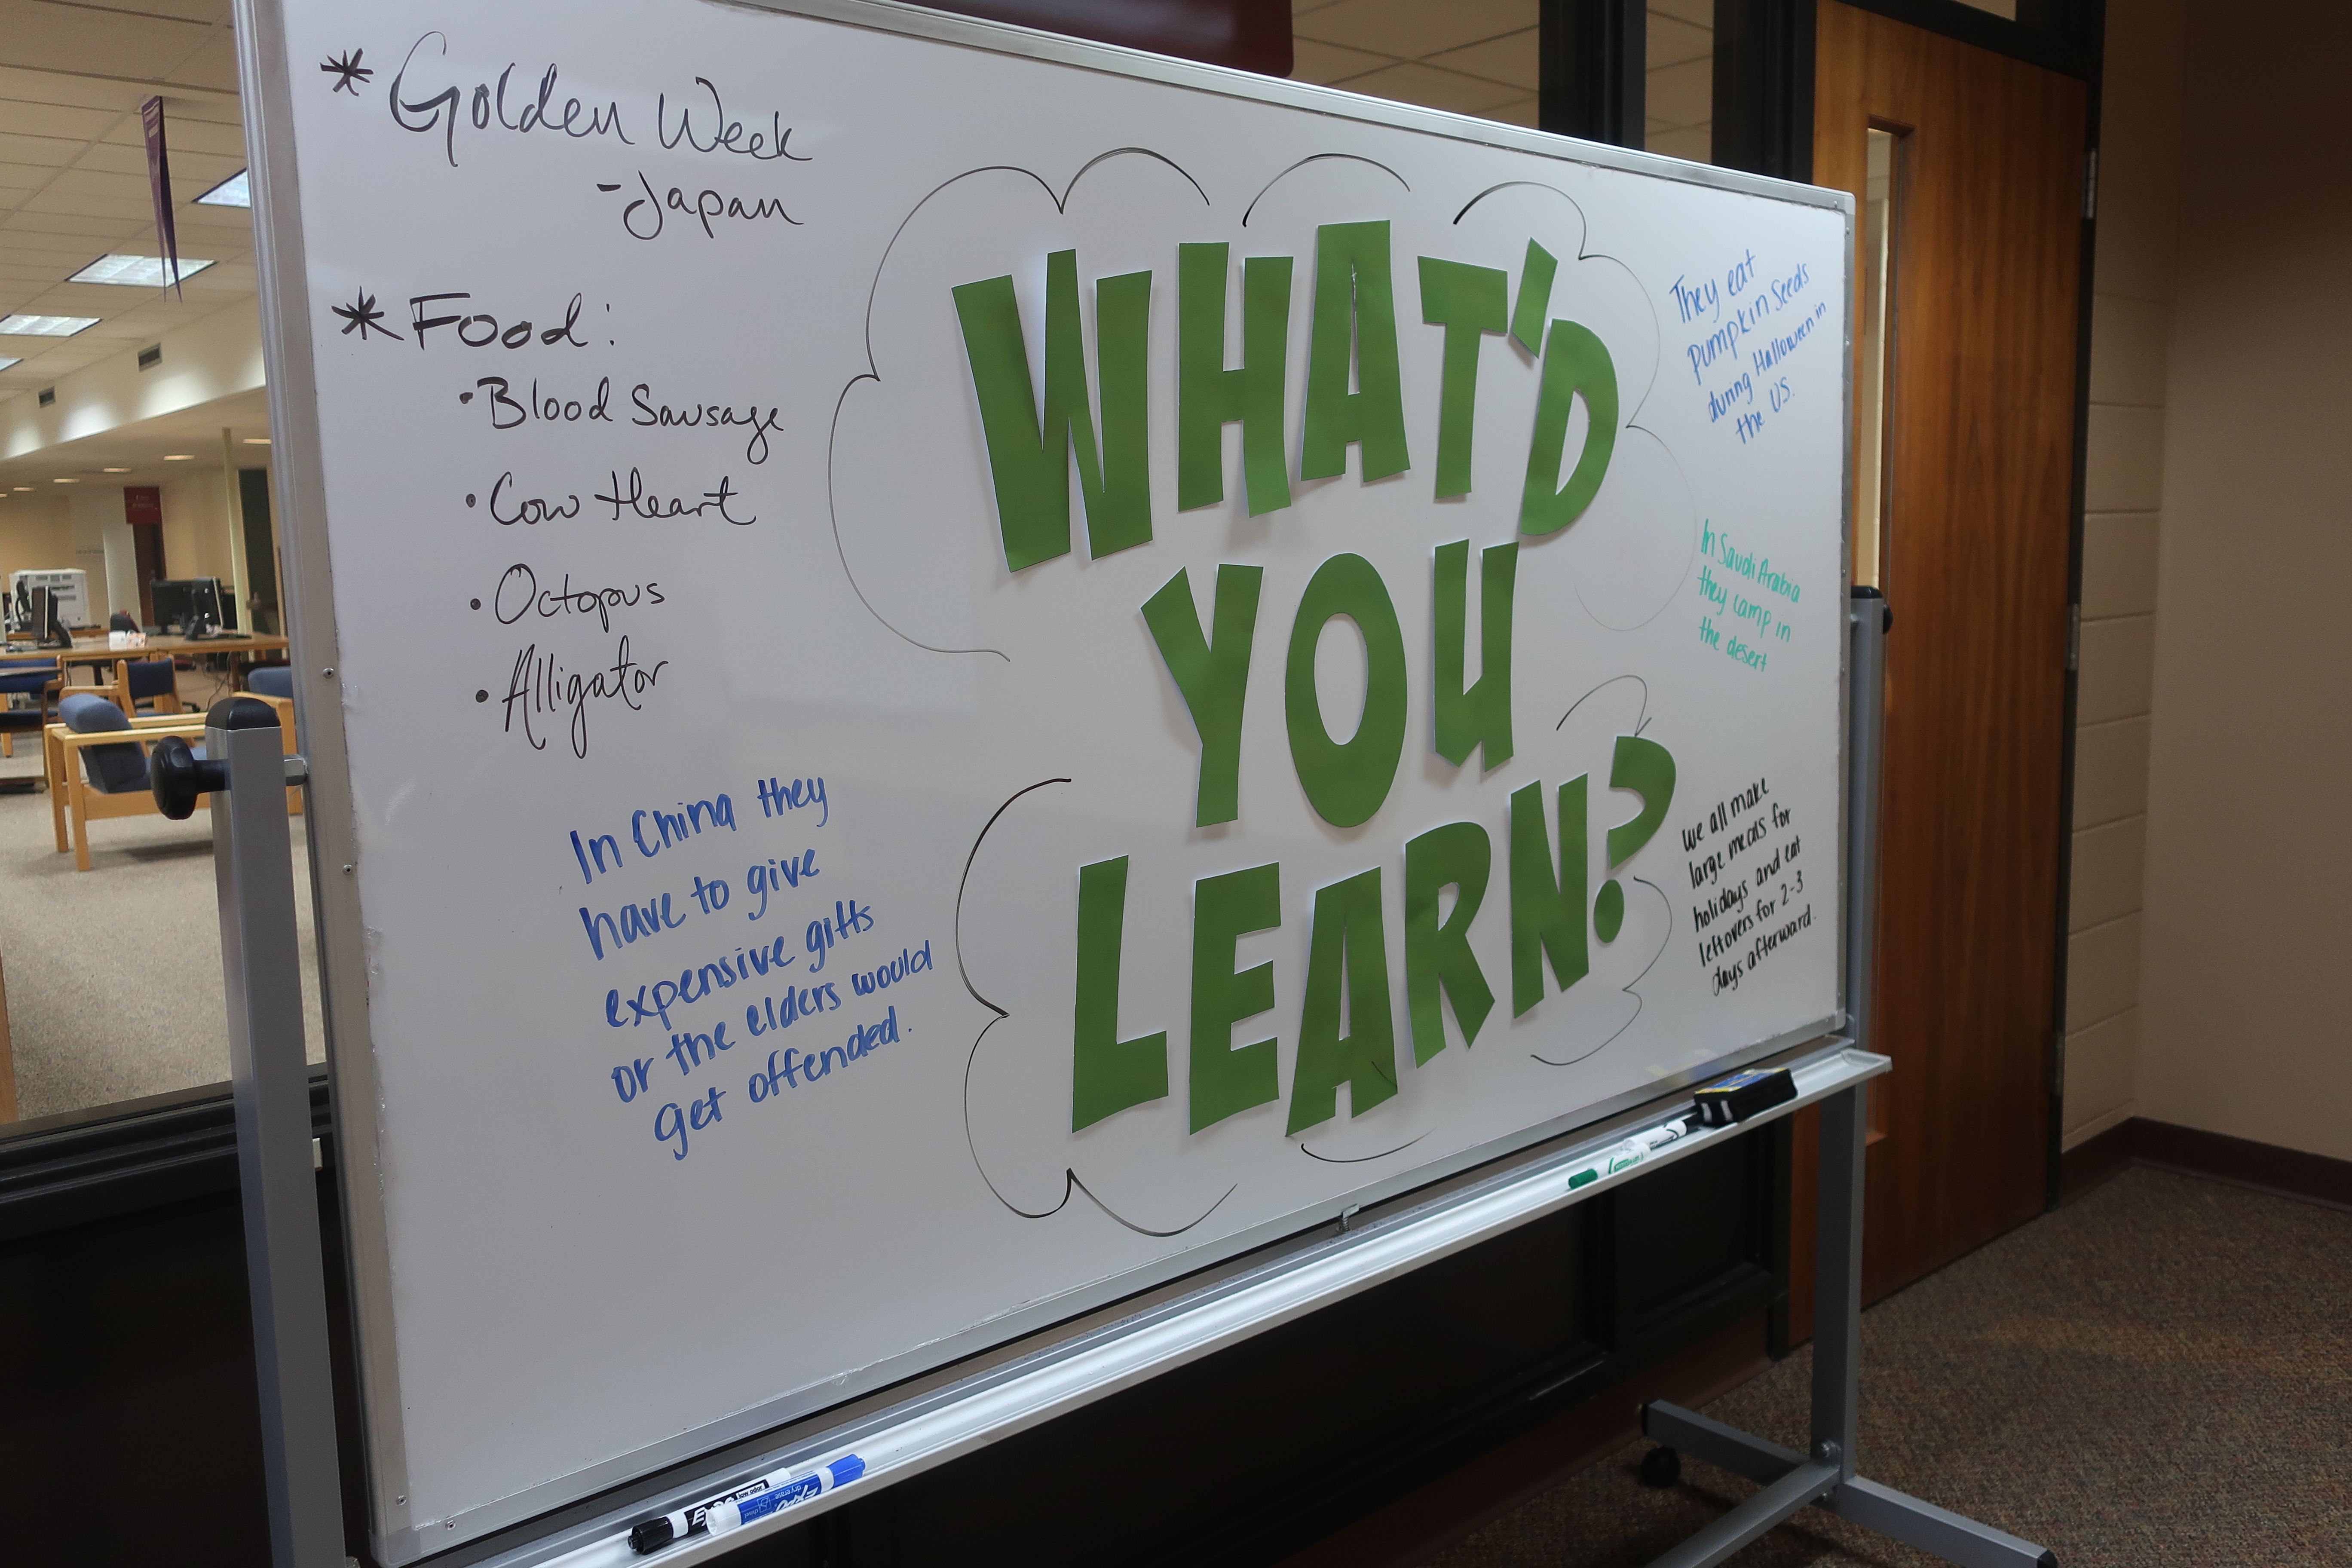 * Golden Week
-Japan
* Food:
• Blood Sausage
• Cow Heart
• Octopus
• Alligator
In China they
have to give
expensive gifts
or the elders would
get offended.
WHAT'D
YOU
LEARN?
They eat
pumpkin seeds
during Halloween in
the US.
In Saudi Arabia
they camp in
the desert
we all make
large meals for
holidays and eat
leftovers for 2-3
days afterward.
EXPO
low odor
EXPO